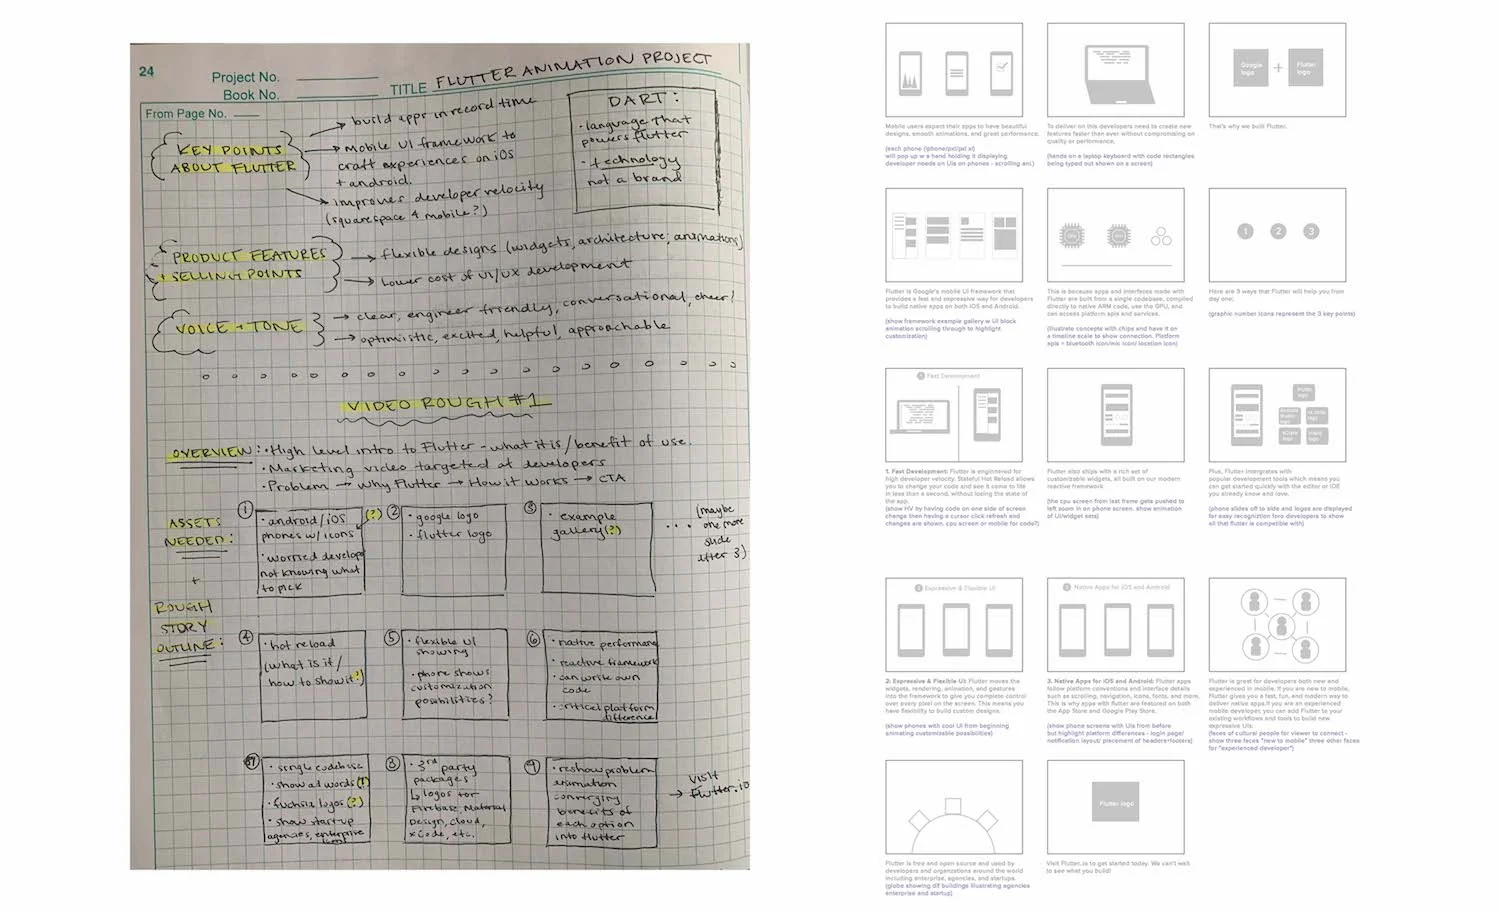 24
Project No.
Book No.
TITLE FLUTTER ANIMATION PROJECT
From Page No.
KEY POINTS
ABOUT FLUTTER
build apps in record time
mobile UI framework to
craft experiences on iOS
+ android.
improves developer velocity
(squarespace 4 mobile?)
DART:
· language that
powers flutter
· technology
not a brand
PRODUCT FEATURES
+ SELLING POINTS
flexible designs (widgets, architecture, animations)
Lower cost of UI/UX development
VOICE + TONE
clear, engineer friendly, conversational, cheer!
optimistic, excited, helpful, approachable
VIDEO ROUGH #1
OVERVIEW: · High level intro to Flutter - what it is / benefit of use.
· Marketing video targeted at developers
· Problem → Why Flutter → How it works → CTA
ASSETS
NEEDED:
+
ROUGH
STORY
OUTLINE:
1
· android/iOS (?)
phones w/ icons
· worried develop
not knowing what
to pick
2
· google logo
· flutter logo
3
· example
gallery (?)
...
(maybe
one more
slide
after 3)
4
· hot reload
(what is it /
how to show it?)
5
· flexible UI
showing
· phone shows
customization
possibilities?
6
· native performan
· reactive framework
· can write own
code
· critical platform
difference
· single codebase
· show ad words (?)
· fuchsia logos (?)
· show start-up
agencies, enterprise
· 3rd party
packages
↳ logos for
Firebase, Material
Design, cloud,
xCode, etc.
9
· reshow problem
animation
converging
benefits of
each option
into flutter
→ visit
flutter.io
Mobile users expect their apps to have beautiful
designs, smooth animations, and great performance.
(each phone (iphone/pxl/pxl xl)
will pop up w a hand holding it displaying
developer needs on UIs on phones - scrolling ani.)
To deliver on this developers need to create new
features faster than ever without compromising on
quality or performance,
(hands on a laptop keyboard with code rectangles
being typed out shown on a screen)
Google
logo
+
Flutter
logo
That's why we built Flutter.
Flutter is Google's mobile UI framework that
provides a fast and expressive way for developers
to build native apps on both iOS and Android.
(show framework example gallery w UI block
animation scrolling through to highlight
customization)
This is because apps and interfaces made with
Flutter are built from a single codebase, compiled
directly to native ARM code, use the GPU, and
can access platform apis and services.
(Illustrate concepts with chips and have it on
a timeline scale to show connection. Platform
apis = bluetooth icon/mic icon/ location icon)
1 2 3
Here are 3 ways that Flutter will help you from
day one;
(graphic number icons represent the 3 key points)
1 Fast Development
1. Fast Development: Flutter is enginnered for
high developer velocity. Stateful Hot Reload allows
you to change your code and see it come to life
in less than a second, without losing the state of
the app.
(show HV by having code on one side of screen
change then having a cursor click refresh and
changes are shown, cpu screen or mobile for code?)
Flutter also ships with a rich set of
customizable widgets, all built on our modern
reactive framework
(the cpu screen from last frame gets pushed to
left zoom in on phone screen. show animation
of UI/widget sets)
Flutter
logo
Plus, Flutter intergrates with
popular development tools which means you
can get started quickly with the editor or IDE
you already know and love.
(phone slides off to side and logos are displayed
for easy recogniztion foro developers to show
all that flutter is compatible with)
2 Expressive & Flexible UI
2. Expressive & Flexible UI: Flutter moves the
widgets, rendering, animation, and gestures
into the framework to give you complete control
over every pixel on the screen. This means you
have flexibility to build custom designs.
(show phones with cool UI from beginning
animating customizable possibilities)
3 Native Apps for iOS and Android
3. Native Apps for iOS and Android: Flutter apps
follow platform conventions and interface details
such as scrolling, navigation, icons, fonts, and more.
This is why apps with flutter are featured on both
the App Store and Google Play Store.
(show phone screens with UIs from before
but highlight platform differences - login page/
notification layout/ placement of headers+footers)
Flutter is great for developers both new and
experienced in mobile. If you are new to mobile,
Flutter gives you a fast, fun, and modern way to
deliver native apps.If you are an experienced
mobile developer, you can add Flutter to your
existing workflows and tools to build new
expressive UIs.
(faces of cultural people for viewer to connect -
show three faces "new to mobile" three other faces
for "experienced developer")
Flutter is free and open source and used by
developers and organztions around the world
including enterprise, agencies, and startups.
(globe showing dif buildings illustrating agencies
enterprise and startup)
Flutter logo
Visit Flutter.io to get started today. We can't wait
to see what you build!